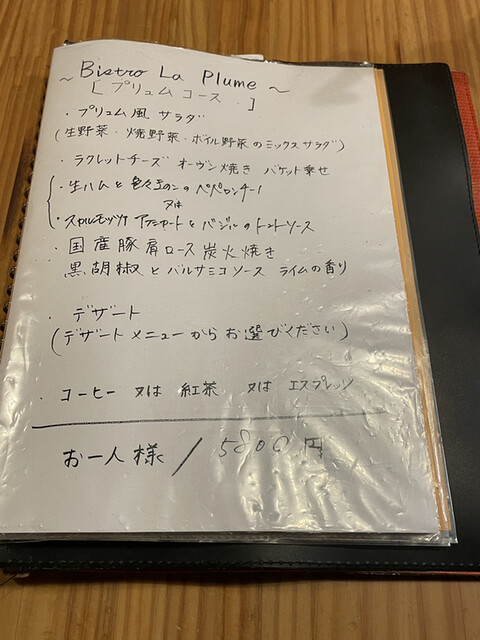 ~ Bistro La Plume ~
[ プリュム コース ]
・プリュム風 サラダ
(生野菜・焼野菜・ボイル野菜のミックスサラダ)
・ラクレットチーズ オーヴン焼き バケット乗せ
・生ハムと色々きのこのペペロンチーノ
又は
・スカルモッツァ アフミカートとバジルのトマトソース
・国産豚肩ロース炭火焼き
黒胡椒とバルサミコソース ライムの香り
・デザート
(デザートメニューからお選びください)
・コーヒー 又は 紅茶 又は エスプレッソ
お一人様 / 5800円